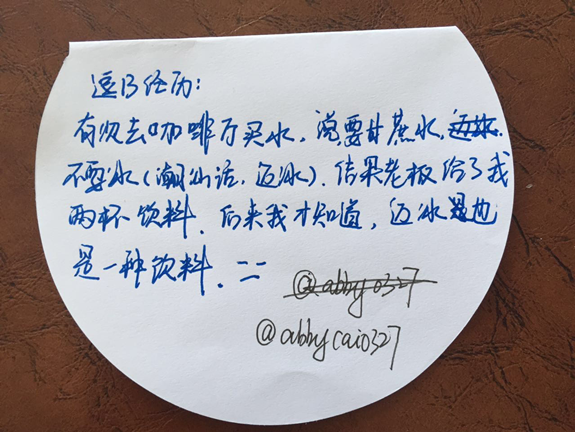 逗B经历:
有次去咖啡厅买水，说要甘蔗水，迈冰.
不要冰(潮汕话，迈冰). 结果老板给了我
两杯饮料. 后来我才知道，迈冰是也
是一种饮料. 二二
@abby0327
@abbycai0327